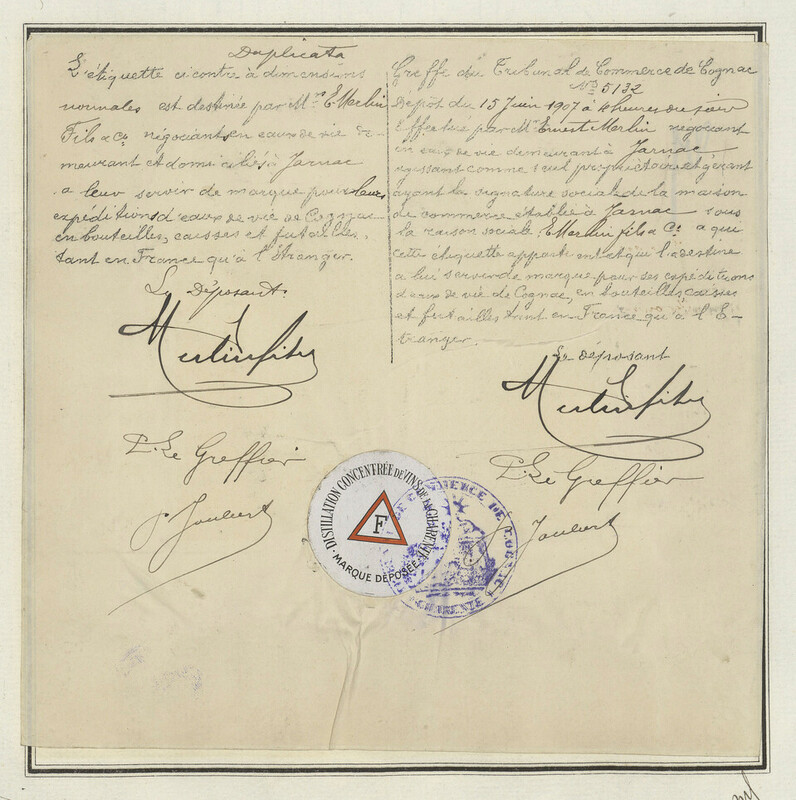 Duplicata
L'étiquette ci contre à dimensions
normales est destinée par Mrs E. Merlin
Fils & Co négociants en eaux de vie de-
meurant et domiciliés à Jarnac
a leur servir de marque pour leurs
expéditions d'eaux de vie de Cognac
en bouteilles, caisses et futailles
tant en France qu'à l'Etranger.
Le Déposant.
Merlin fils
P. Le Greffier
Joubert
Greffe du Tribunal de Commerce de Cognac
No 5132
Dépôt du 15 Juin 1907 à 4 heures du soir
Effectué par Mr Ernest Merlin négociant
en eaux de vie demeurant à Jarnac
agissant comme seul propriétaire et gérant
ayant la signature sociale de la maison
de commerce établie à Jarnac sous
la raison sociale E. Merlin fils & Co a qui
cette étiquette appartient et qui l'a destine
a lui servir de marque pour ses expéditions
d'eaux de vie de Cognac, en bouteilles, caisses
et futailles tant en France qu'à l'E-
tranger.
Le déposant
Merlin fils
P. Le Greffier
Joubert
DISTILLATION CONCENTRÉE DE VINS DE LA CHARENTE
F
MARQUE DÉPOSÉE
COMMERCE DE COGNAC
CHARENTE